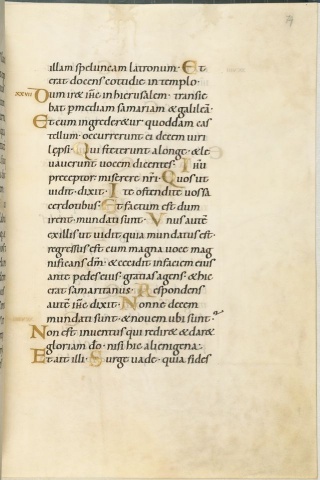 illam speluncam latronum· Et
erat docens cotidie in templo·
xxvii Dum iret ihs in hierusalem· transie
bat p mediam samariam & galileã·
Et cum ingrederetur quoddam cas
tellum· occurrerunt ei decem viri
leprosi· Qui steterunt a longe· & le
vaverunt vocem dicentes· Ihu
preceptor· miserere nri· Quos ut
vidit· dixit· Ite ostendite vos sa
cerdotibus· Et factum est dum
irent· mundati sunt· Unus autẽ
ex illis ut vidit quia mundatus est·
regressus est cum magna voce mag
nificans dm̃· & cecidit in faciem eius
ante pedes eius· gratias agens· & hic
erat samaritanus· Respondens
autẽ ihs dixit· Nonne decem
mundati sunt· & novem ubi sunt·
Non est inventus qui rediret & daret
gloriam do· nisi hic alienigena·
Et ait illi· Surge vade· quia fides